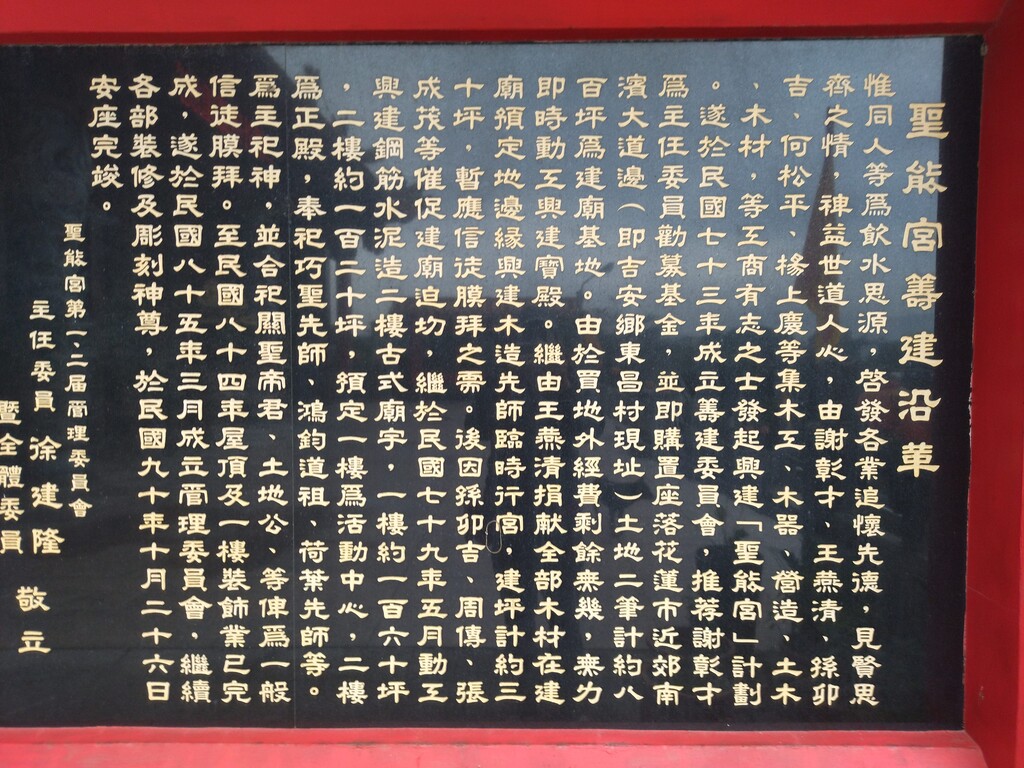 聖能宮籌建沿革
惟同人等為飲水思源，啓發各業追懷先德，見賢思
齊之情，裨益世道人心，由謝彰才、王燕清、孫卯
吉、何松平、楊上慶等集木工、木器、營造、土木
、木材，等工商有志之士發起興建「聖能宮」計劃
。遂於民國七十三年成立籌建委員會，推荐謝彰才
為主任委員勸募基金，並即購置座落花蓮市近郊南
濱大道邊（即吉安鄉東昌村現址）土地二筆計約八
百坪為建廟基地。由於買地外經費剩餘無幾，無力
即時動工興建寶殿。繼由王燕清捐献全部木材在建
廟預定地邊緣興建木造先師臨時行宮，建坪計約三
十坪，暫應信徒膜拜之需。後因孫卯吉、周傳、張
成茂等催促建廟迫切，繼於民國七十九年五月動工
興建鋼筋水泥造二樓古式廟宇，一樓約一百六十坪
，二樓約一百二十坪，預定一樓為活動中心，二樓
為正殿，奉祀巧聖先師、鴻鈞道祖、荷葉先師等。
為主祀神，並合祀關聖帝君、土地公、等俾為一般
信徒膜拜。至民國八十四年屋頂及一樓裝飾業已完
成，遂於民國八十五年三月成立管理委員會、繼續
各部裝修及彫刻神尊，於民國九十年十月二十六日
安座完竣。
聖能宮第一、二届管理委員會
主任委員 徐建隆
暨全體委員 敬立